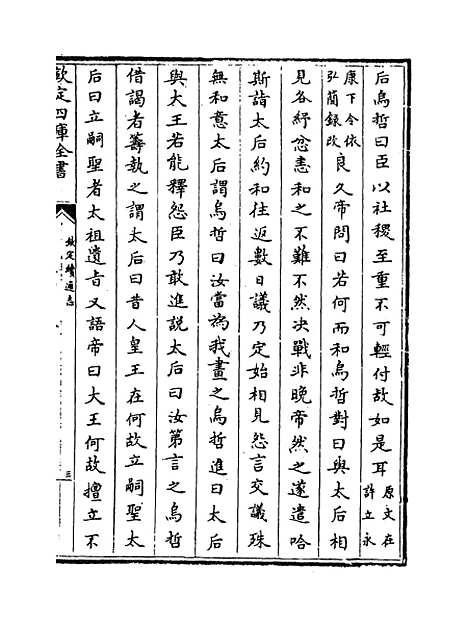 后烏哲曰臣以社稷至重不可輕付故如是耳原文在許立永
康下今依弘簡錄改良久帝問曰若何而和烏哲對曰與太后相
見各紓忿恚和之不難不然決戰非晚帝然之遂遣哈
斯詣太后約和往返數日議乃定始相見怨言交議殊
無和意太后謂烏哲曰汝當為我畫之烏哲進曰太后
與大王若能釋怨臣乃敢進說太后曰汝第言之烏哲
借謁者籌執之謂太后曰昔人皇王在何故立嗣聖太
后曰立嗣聖者太祖遺旨又語帝曰大王何故擅立不
欽定四庫全書
欽定續通志
三